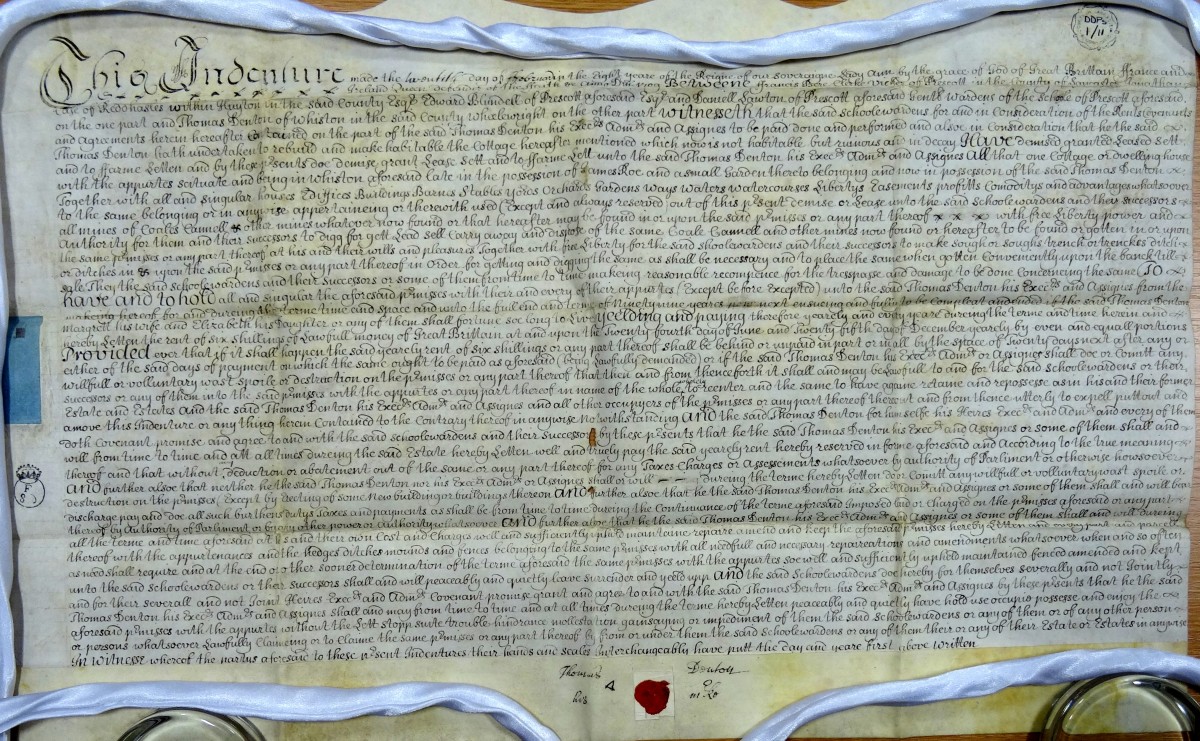 DDPS
1/11
This Indenture made the twentieth day of ffebruary in the Eight yeare of the Reigne of our Soveraigne Lady Ann by the grace of God of Great Brittain ffrance and
Ireland Queen defender of the ffaith Betweene ffrancis Vicker of Prescott in the County of Lancaster Jonathan
Case of Redd hasles within Huyton in the said County Esqr Edward Blundell of Prescott aforesaid Esqr and Daniell Lawton of Prescott aforesaid Gent Wardens of the Schole of Prescott aforesaid
on the one part and Thomas Denton of Whiston in the said County Wheelewright on the other part Witnesseth that the said schoolewardens for and in Consideration of the Rents Covenants
and Agreements herein hereafter Contained on the part of the said Thomas Denton his Execrs Admrs and Assignes to be paid done and performed and alsoe in Consideration that he the said
Thomas Denton hath undertaken to rebuild and make habitable the Cottage hereafter mentioned which now is not habitable but ruinous and in decay Have demised granted Leased sett
and to ffarme Letten and by these psents doe demise grant Lease Sett and to ffarme Lett unto the said Thomas Denton his Execrs Admrs and Assignes All that one Cottage or dwelling house
with the appurtes scituate and being in Whiston aforesaid late in the possession of James Roe and a small Garden thereto belonging and now in possession of the said Thomas Denton
Together with all and singular houses Ediffices Buildings Barnes Stables Yords Orchards Gardens Ways Waters Watercourses Libertys Easements profitts Comoditys and advantages whatsoever
to the same belonging or in anywise appertaineing or therewith used (Except and always reserved out of this psent demise or Lease unto the said Schoolewardens and their successors
all mines of Coales Cannell & other mines whatsoever now found or that hereafter may be found in or upon the said pmisses or any part thereof x x x with free Liberty power and
Authority for them and their successors to digg for gett Lead sell Carry away and dispose of the same Coale Cannell and other mines now found or hereafter to be found or gotten in or upon
the same pmisses or any part thereof at his and their wills and pleasures Together with free Liberty for the said Shoolewardens and their successors to make sough or soughs trench or trenches ditch
or ditches in & upon the said pmisses or any part thereof in Order for getting and digging the same as shall be necessary and to place the same when gotten Conveniently upon the banck till
sale They the said schoolewardens and their successors or some of them from time to time makeing reasonable recompence for the tresspasse and damage to be done Concerning the same) To
have and to hold all and singular the aforesaid pmisses with their and every of their appurtes (Except before Excepted) unto the said Thomas Denton his Execrs and Assignes from the
makeing hereof for and dureing the terme time and space and unto the full end and terme of Ninety nine yeares now next ensueing and fully to be Compleat and ended if the said Thomas Denton
Margrett his wife and Elizabeth his Daughter or any of them shall fortune soe long to Live Yeelding and paying therefore yearely and every yeare dureing the terme and time herein and
hereby Letten the rent of six shillings of Lawfull money of Great Brittain at and upon the Twenty fourth day of June and Twenty fifth day of December yearely by even and equall portions
Provided ever that if it shall happen the said yearely rent of six shillings or any part thereof shall be behind or unpaid in part or in all by the space of Twenty days next after any or
either of the said days of payment on which the same ought to be paid as aforesaid (being Lawfully demanded) or if the said Thomas Denton his Execrs Admrs or Assignes shall doe or Comitt any
willfull or voluntary wast spoile or destraction on the pmisses or any part thereof that then and from thenceforth it shall and may be Lawfull to and for the said Schoolewardens or their
successors or any of them into the said pmisses with the appurtes or any part thereof in name of the whole to reenter and the same to have againe retaine and repossesse as in his and their former
Estate and Estates And the said Thomas Denton his Execrs Admrs and Assignes and all other occupyers of the pmisses or any part thereof thereout and from thence utterly to expell putt out and
amove this Indenture or any thing herein Contained to the Contrary thereof in anywise notwithstanding And the said Thomas Denton for himselfe his Heires Execrs and Admrs and every of them
doth Covenant promise and agree to and with the said schoolewardens and their successors by these psents that he the said Thomas Denton his Execrs and Assignes or some of them shall and
will from time to time and att all times dureing the said Estate hereby Letten well and truely pay the said yearely rent hereby reserved in forme aforesaid and According to the true meaning
thereof and that without deduction or abatement out of the same or any part thereof for any Taxes Charges or Assessements whatsoever by authority of Parliment or otherwise howsoever
And further alsoe that neither he the said Thomas Denton nor his Execrs Admrs or Assignes shall or will dureing the terme hereby Letten doe or Comitt any willfull or voluntary wast spoile or
destruction on the pmisses Except by erecting of some New building or buildings thereon And further alsoe that he the said Thomas Denton his Execrs Admrs and Assignes or some of them shall and will bear
discharge pay and Doe all such burthens dutys Taxes and payments as shall be from time to time dureing the Continuance of the terme aforesaid Imposed laid or Charged on the pmisses aforesaid or any part
thereof by Authority of Parliment or by any other power or authority whatsoever And further alsoe that he the said Thomas Denton his Execrs Admrs and Assignes or some of them shall and will dureing
all the terme and time aforesaid at his and their own Cost and Charges well and sufficiently uphold maintaine repaire amend and keep the aforesaid pmisses hereby Letten and every part and parcell
thereof with the appurtenances and the hedges ditches mounds and fences belonging to the same pmisses with all needfull and necessary reparreations and amendments whatsoever when and so often
as need shall require and at the end or other sooner determination of the terme aforesaid the same pmisses with the appurtes soe well and sufficiently upheld maintained fenced amended and kept
unto the said Schoolewardens or their successors shall and will peaceably and quietly leave surrender and yeeld upp And the said Schoolewardens doe hereby for themselves severally and not Jointly
and for their severall and not Joint Heires Execrs and Admrs Covenant promise grant and agree to and with the said Thomas Denton his Execrs Admrs and Assignes by these psents that he the said
Thomas Denton his Execrs Admrs and Assignes shall and may from time to time and at all times dureing the terme hereby Letten peaceably and quietly have hold use occupie possesse and enjoy the
aforesaid pmisses with the appurtes without the Lett stopp suite trouble hindrance mollestation gainsaying or impediment of them the said Schoolewardens or any of them or of any other person
or persons whatsoever Lawfully Claimeing or to Claime the same pmisses or any part thereof by from or under them the said Schoolewardens or any of them their or any of their Estate or Estates in anywise
In Witnesse whereof the partys aforesaid to these psent Indentures their hands and seales Interchangeably have putt the day and yeare first above written
Thomas Denton
his